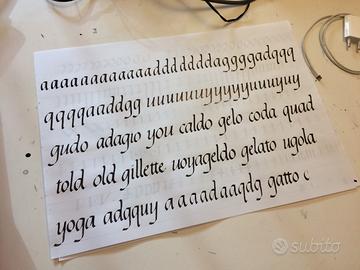 aaaaaaaaaaaadddddddaggggadqqq
qqqqaaddgg uuuuuuyyyyyyuuuyuy
gudo adagio you caldo gelo coda quad
told old gillette uoyageldo gelato ugola
yoga adgquy aaaadaaqdg gatto c
subito